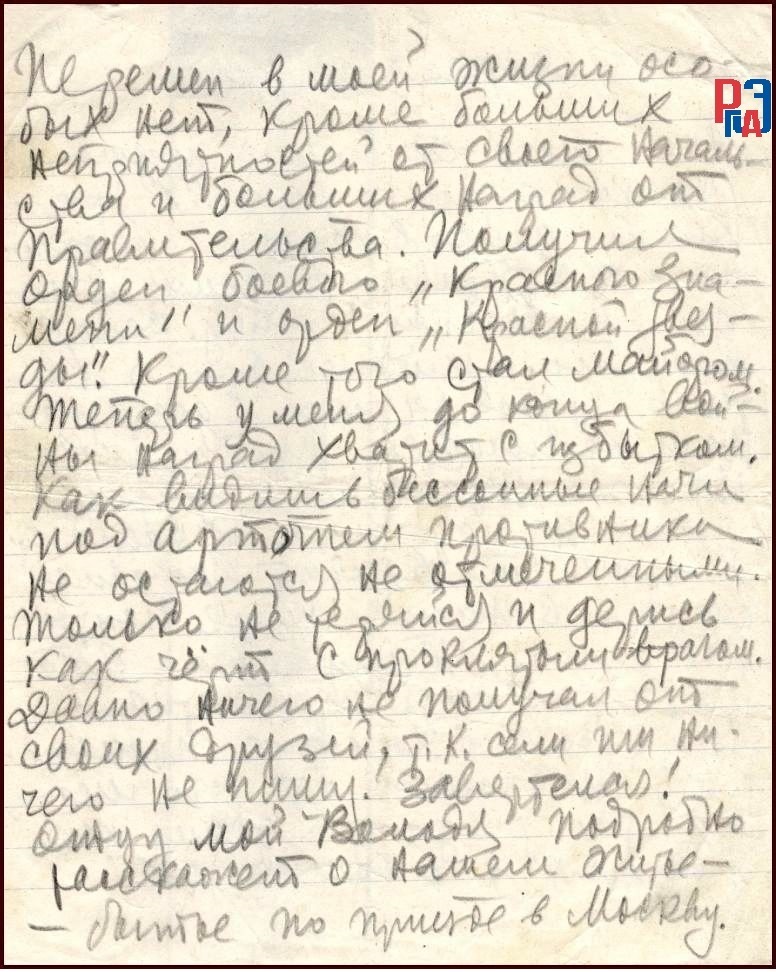 Перемен в моей жизни осо-
бых нет, кроме больших
неприятностей от своего началь-
ства и больших наград от
Правительства. Получил
орден боевого „Красного Зна-
мени" и орден „Красной Звез-
ды". Кроме того стал майором.
Теперь у меня до конца вой-
ны наград хватит с избытком.
Как видишь бессонные ночи
под артогнем противника
не остаются не отмеченными.
Только не теряйся и дерись
как чёрт с проклятым врагом.
Давно ничего не получал от
своих друзей, т.к. сам им ни-
чего не пишу. Завертелся!
мой Володя подробно
расскажет о нашем житье-
- бытье по приезде в Москву.
РГАЭ